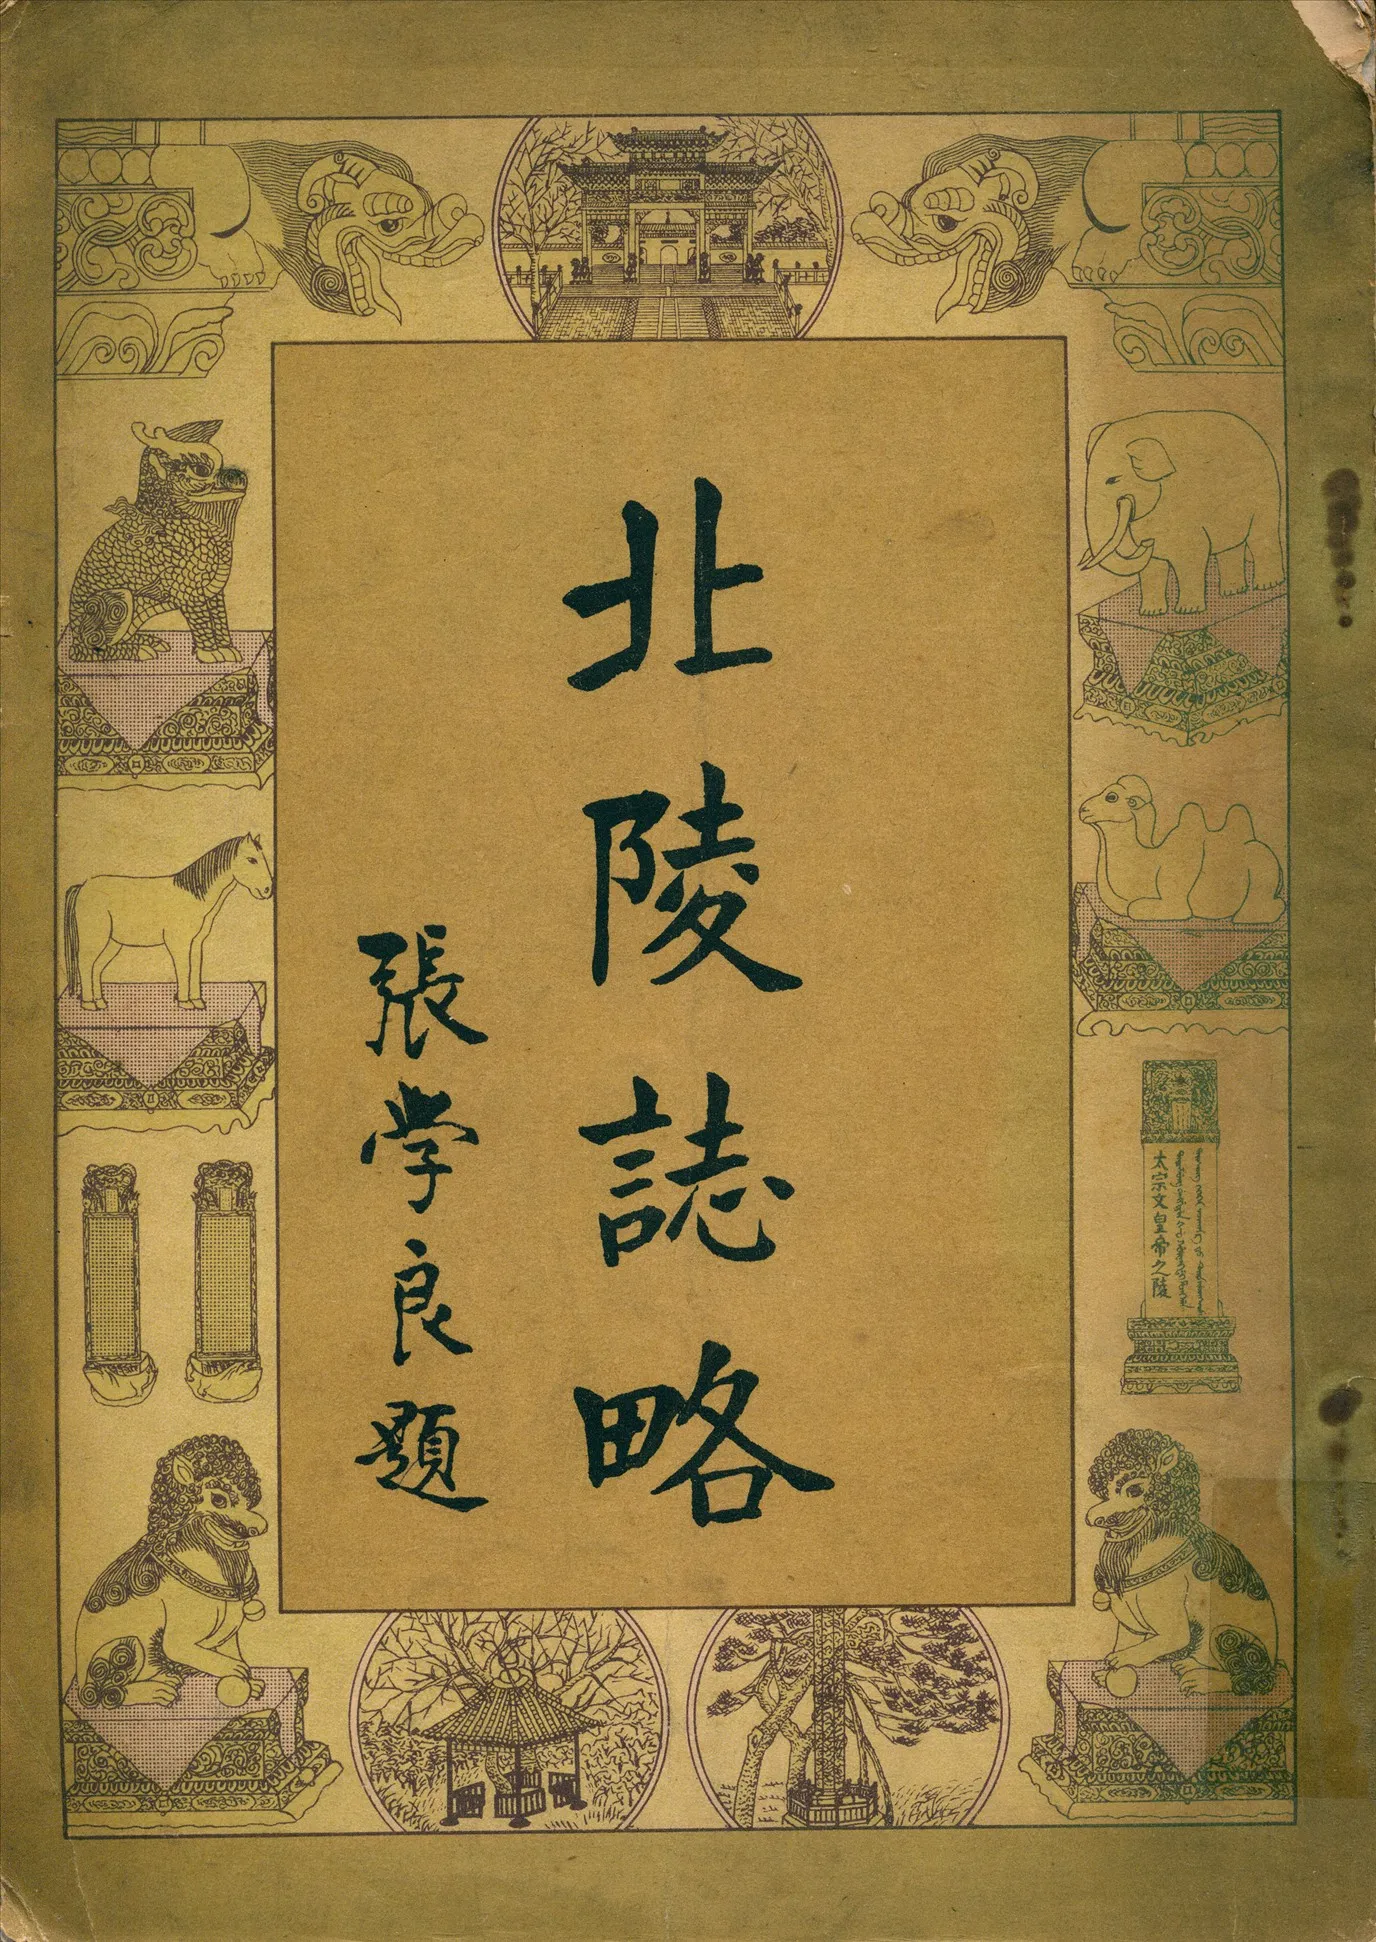 北陵誌略
張学良題
太宗文皇帝之陵